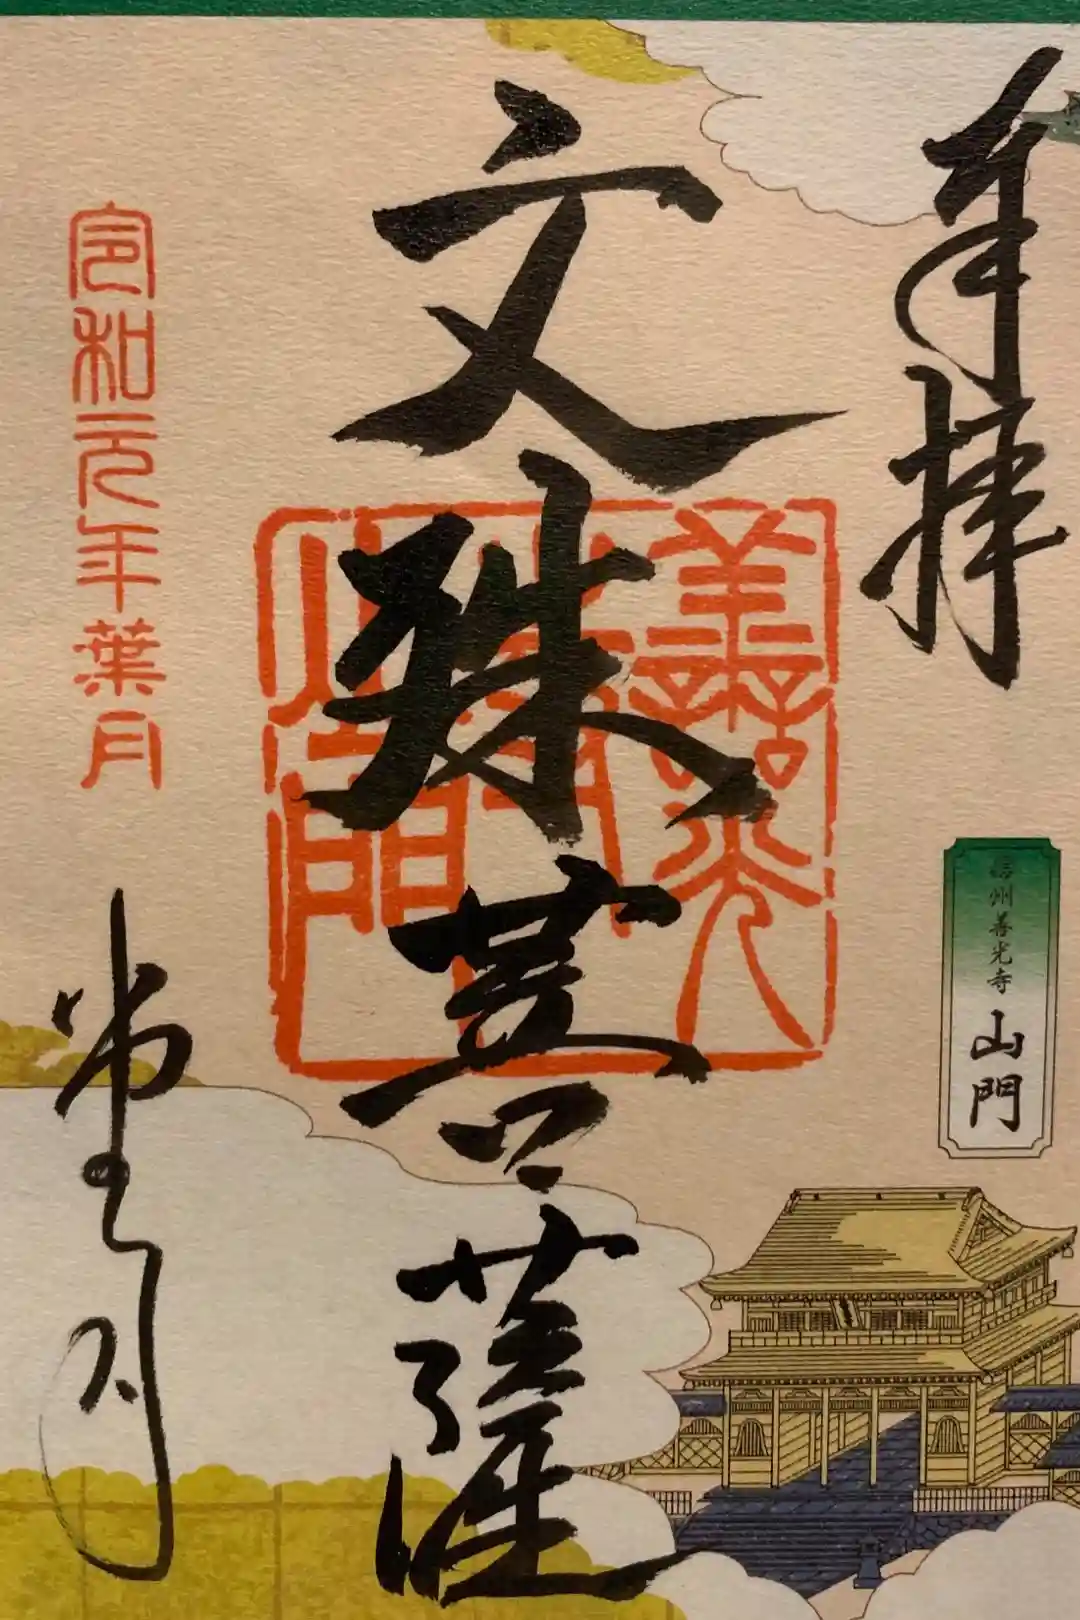 奉拝
信州善光寺 山門
文殊菩薩
善光寺山門
令和元年葉月